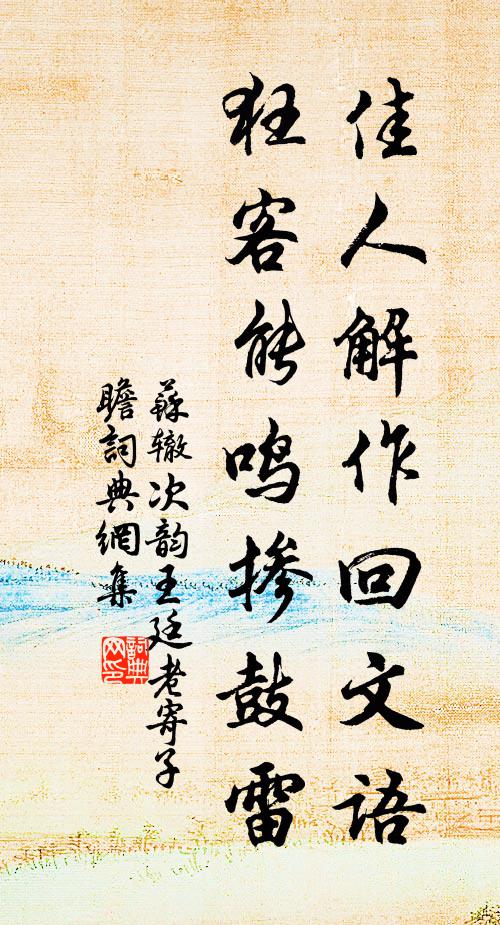 佳人解作回文语
狂客能鸣掺鼓雷
蘇辙次韵王廷老寄子
瞻詞典網集
詞典
网印